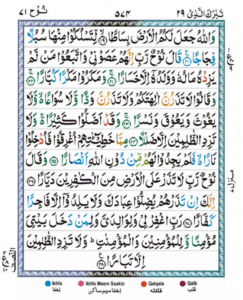 تَبٰرَكَ الَّذِیْ ٢٩
نُوْح ٧١
وَاللّٰهُ جَعَلَ لَكُمُ الْاَرْضَ بِسَاطًا ۙ لِّتَسْلُكُوْا مِنْهَا سُبُلًا
فِجَاجًا ۠ قَالَ نُوْحٌ رَّبِّ اِنَّهُمْ عَصَوْنِیْ وَاتَّبَعُوْا مَنْ لَّمْ
يَزِدْهُ مَالُهٗ وَوَلَدُهٗۤ اِلَّا خَسَارًا ۚ وَمَكَرُوْا مَكْرًا كُبَّارًا ۚ وَ
قَالُوْا لَا تَذَرُنَّ اٰلِهَتَكُمْ وَلَا تَذَرُنَّ وَدًّا وَّلَا سُوَاعًا ۙ وَّلَا
يَغُوْثَ وَيَعُوْقَ وَنَسْرًا ۚ وَقَدْ اَضَلُّوْا كَثِيْرًا ۚ وَلَا
تَزِدِ الظّٰلِمِيْنَ اِلَّا ضَلٰلًا مِمَّا خَطِيْٓـٰٔتِهِمْ اُغْرِقُوْا فَاُدْخِلُوْا
نَارًا ۙ فَلَمْ يَجِدُوْا لَهُمْ مِّنْ دُوْنِ اللّٰهِ اَنْصَارًا وَقَالَ
نُوْحٌ رَّبِّ لَا تَذَرْ عَلَى الْاَرْضِ مِنَ الْكٰفِرِيْنَ دَيَّارًا
اِنَّكَ اِنْ تَذَرْهُمْ يُضِلُّوْا عِبَادَكَ وَلَا يَلِدُوْۤا اِلَّا فَاجِرًا
كَفَّارًا رَبِّ اغْفِرْ لِیْ وَلِوَالِدَیَّ وَلِمَنْ دَخَلَ بَيْتِیَ
مُؤْمِنًا وَّلِلْمُؤْمِنِيْنَ وَالْمُؤْمِنٰتِ ؕ وَلَا تَزِدِ الظّٰلِمِيْنَ
اِلَّا تَبَارًا
Ikhfa Ikhfa Meem Saakin Qalqala Qalb
اخفا اخفا میم ساکن قلقله قلب